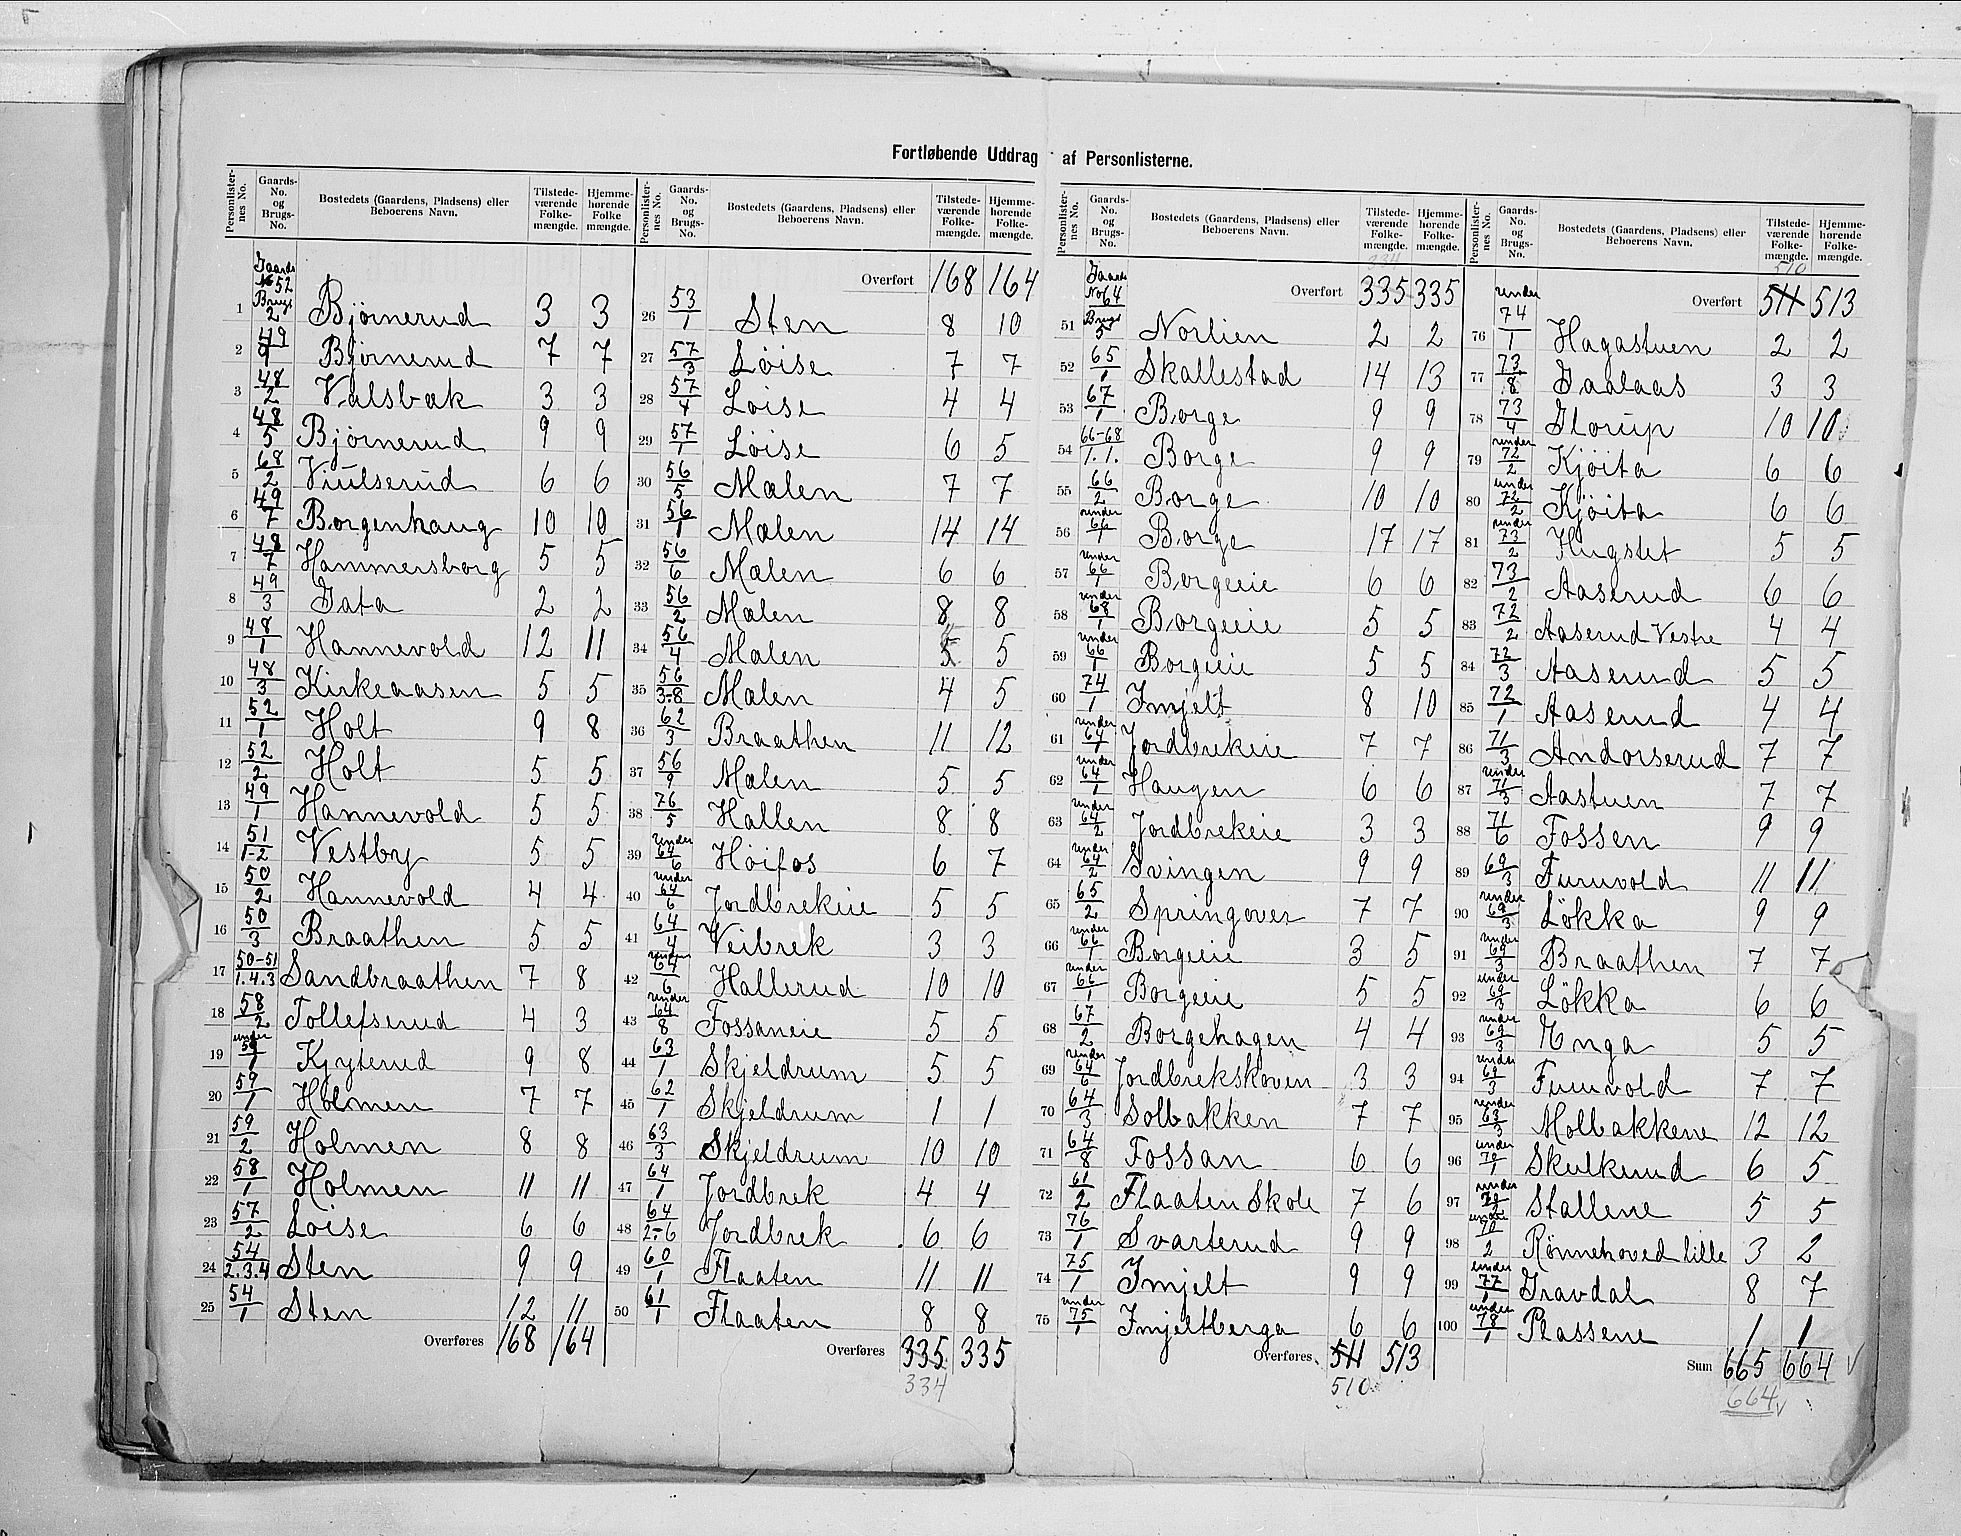 Fortløbende Uddrag af Personlisterne.
Personlisternes No. | Gaards-No. og Brugs-No. | Bostedets (Gaardens, Pladsens) eller Beboerens Navn. | Tilstedeværende Folkemængde. | Hjemmehørende Folkemængde.
1 Gaards No 52 Brugs 2 Bjørnerud 3 3
2 49/9 Bjørnerud 7 7
3 48/2 Valsbæk 3 3
4 48/5 Bjørnerud 9 9
5 68/2 6 6
6 49/7 Borgenhaug 10 10
7 48/7 Hammersborg 5 5
8 49/3 Jata 2 2
9 48/1 Hannevold 12 11
10 48/3 Kirkeaasen 5 5
11 52/1 Holt 9 8
12 52/2 Holt 5 5
13 49/1 Hannevold 5 5
14 51/1-2 Vestby 5 5
15 50/2 Hannevold 4 4
16 50/3 Braathen 5 5
17 50-51/1.4.3 Sandbraathen 7 8
18 58/2 Tollefserud 4 3
19 under 59/1 Kjyterud 9 8
20 59/1 Holmen 7 7
21 59/2 Holmen 8 8
22 58/1 Holmen 11 11
23 57/2 Løise 6 6
24 54/2.3.4 Sten 9 9
25 54/1 Sten 12 11
Overføres 168 164
Personlisternes No. | Gaards-No. og Brugs-No. | Bostedets (Gaardens, Pladsens) eller Beboerens Navn. | Tilstedeværende Folkemængde. | Hjemmehørende Folkemængde.
Overført 168 164
26 53/1 Sten 8 10
27 57/3 Løise 7 7
28 57/4 Løise 4 4
29 57/1 Løise 6 5
30 56/5 Mælen 7 7
31 56/1 Mælen 14 14
32 56/6 Mælen 6 6
33 56/2 Mælen 8 8
34 56/4 Mælen 5 5
35 56/3-8 Mælen 4 5
36 62/3 Braathen 11 12
37 56/9 Mælen 5 5
38 76/5 Hallen 8 8
39 under 64/6 Høifos 6 7
40 under 64/6 Jordbrekeie 5 5
41 64/4 Veibrek 3 3
42 under 64/6 Hallerud 10 10
43 under 64/8 Fossaneie 5 5
44 63/1 Skjeldrum 5 5
45 62/1 Skjeldrum 1 1
46 63/3 Skjeldrum 10 10
47 64/1 Jordbrek 4 4
48 64/2-6 Jordbrek 6 6
49 60/1 Flaaten 11 11
50 61/1 Flaaten 8 8
Overføres 335 335
334
Personlisternes No. | Gaards-No. og Brugs-No. | Bostedets (Gaardens, Pladsens) eller Beboerens Navn. | Tilstedeværende Folkemængde. | Hjemmehørende Folkemængde.
334
Overført 335 335
51 Gaards No 64 Brugs 5 Norlien 2 2
52 65/1 Skallestad 14 13
53 67/1 Borge 9 9
54 66-68/1.1. Borge 9 9
55 66/2 Borge 10 10
56 under 66/1 Borge 17 17
57 under 66/1 Borgeeie 6 6
58 under 68/1 Borgeeie 5 5
59 under 66/1 Borgeeie 5 5
60 74/1 Imjelt 8 10
61 under 64/1 Jordbrekeie 7 7
62 under 64/1 Haugen 6 6
63 under 64/2 Jordbrekeie 3 3
64 under 64/2 Svingen 9 9
65 65/2 Springover 7 7
66 under 66/1 Borgeeie 3 5
67 under 66/1 Borgeeie 5 5
68 67/2 Borgehagen 4 4
69 under 64/6 Jordbrekskoven 3 3
70 64/3 Solbakken 7 7
71 64/8 Fossan 6 6
72 61/2 Flaaten Skole 7 6
73 76/1 Svarterud 9 9
74 75/1 Imjelt 9 9
75 under 75/1 Imjeltberga 6 6
Overføres 511 513
510
Personlisternes No. | Gaards-No. og Brugs-No. | Bostedets (Gaardens, Pladsens) eller Beboerens Navn. | Tilstedeværende Folkemængde. | Hjemmehørende Folkemængde.
510
Overført 511 513
76 under 74/1 Hagastuen 2 2
77 73/8 Jaalaas 3 3
78 73/4 Glorup 10 10
79 under 72/2 Kjøita 6 6
80 under 72/2 Kjøita 6 6
81 under 73/2 Hugstet 5 5
82 73/2 Aaserud 6 6
83 72/2 Aaserud Vestre 4 4
84 72/3 Aaserud 5 5
85 72/1 Aaserud 4 4
86 71/3 Andorserud 7 7
87 under 71/3 Aastuen 7 7
88 71/6 Fossen 9 9
89 69/3 Furuvold 11 11
90 under 69/3 Løkka 9 9
91 under 69/3 Braathen 7 7
92 under 69/3 Løkka 6 6
93 under 69/3 Enga 5 5
94 under 69/3 Furuvold 7 7
95 under 63/3 Molbakkene 12 12
96 under 70/1 Skulkerud 6 5
97 under Stallene 5 5
98 under 70/2 Rønnehoved lille 3 2
99 under 77/1 Gravdal 8 7
100 under 78/1 Plassene 1 1
Sum 665 664 ✓
664 ✓